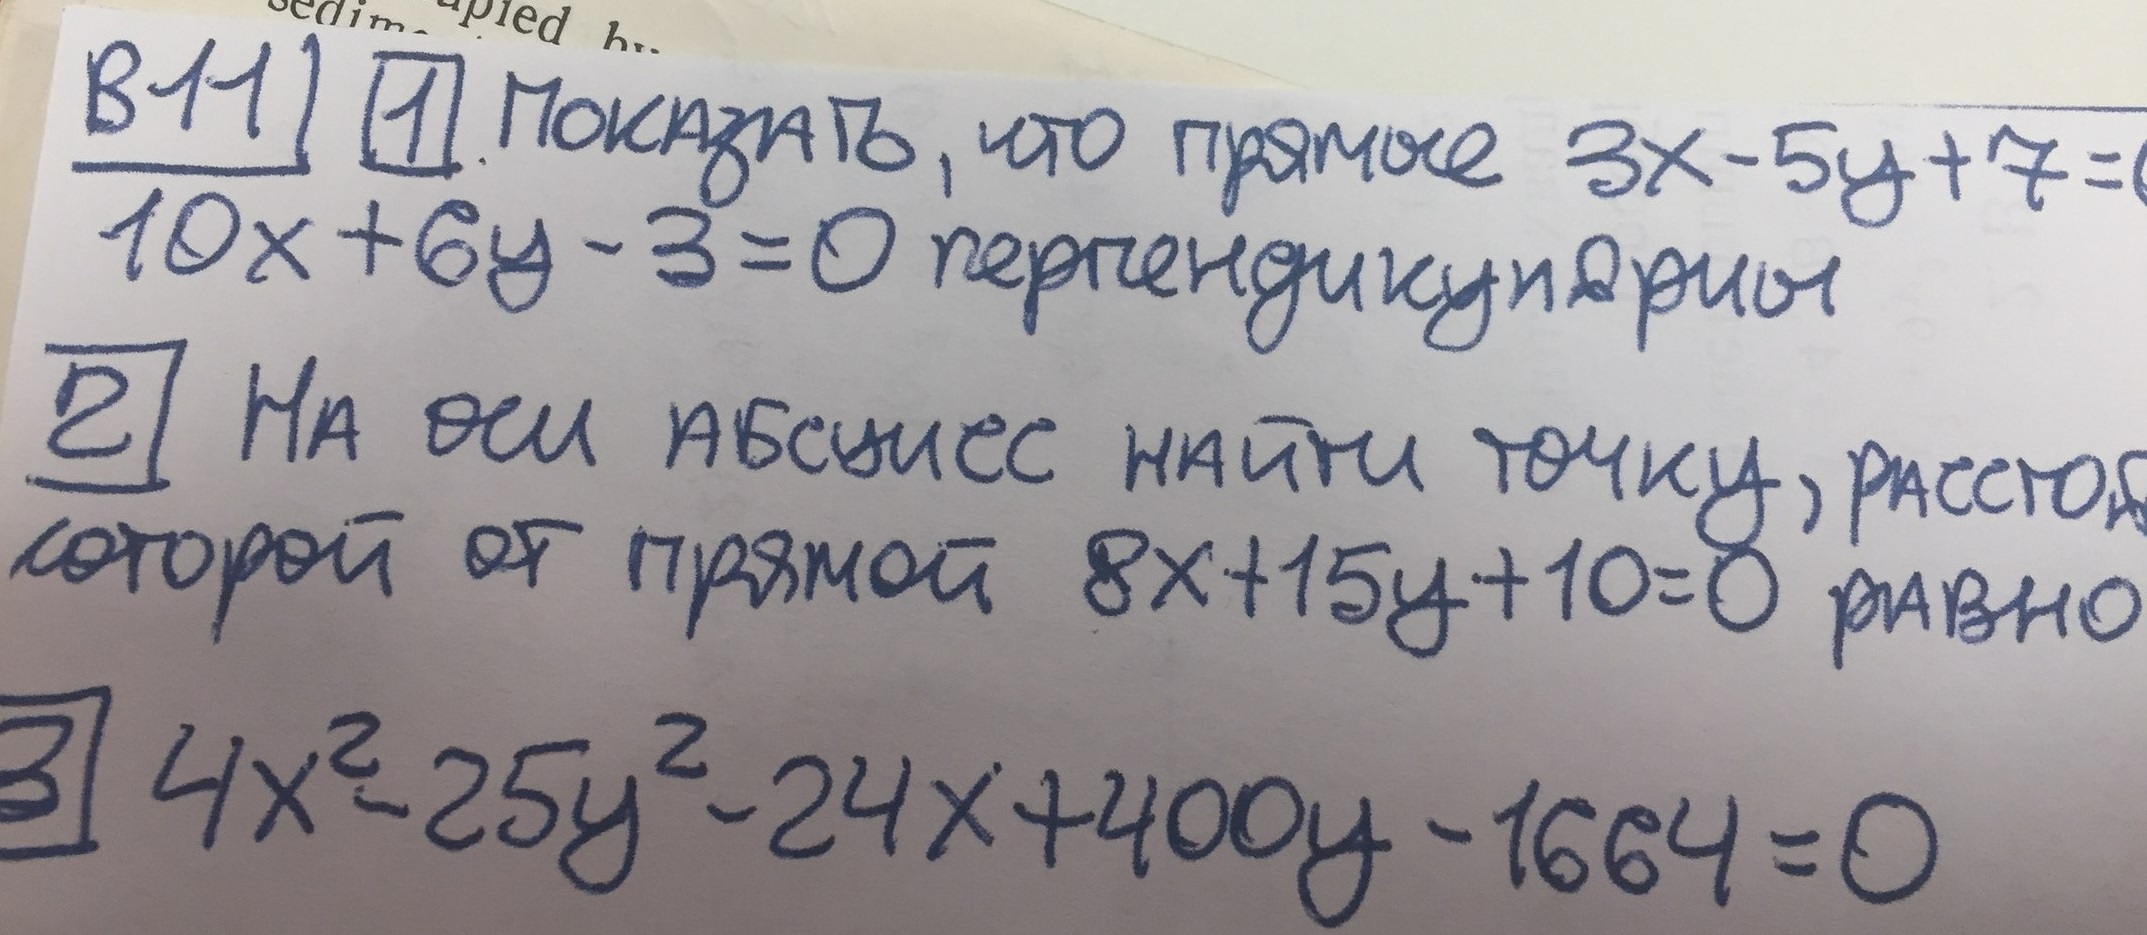 upied by
sedim
В11 1. Показать, что прямые 3x-5y+7=0
10x+6y-3=0 перпендикулярны
2 На оси абсцисс найти точку, расстоя
которой от прямой 8x+15y+10=0 равно
3 4x²-25y²-24x+400y-1664=0